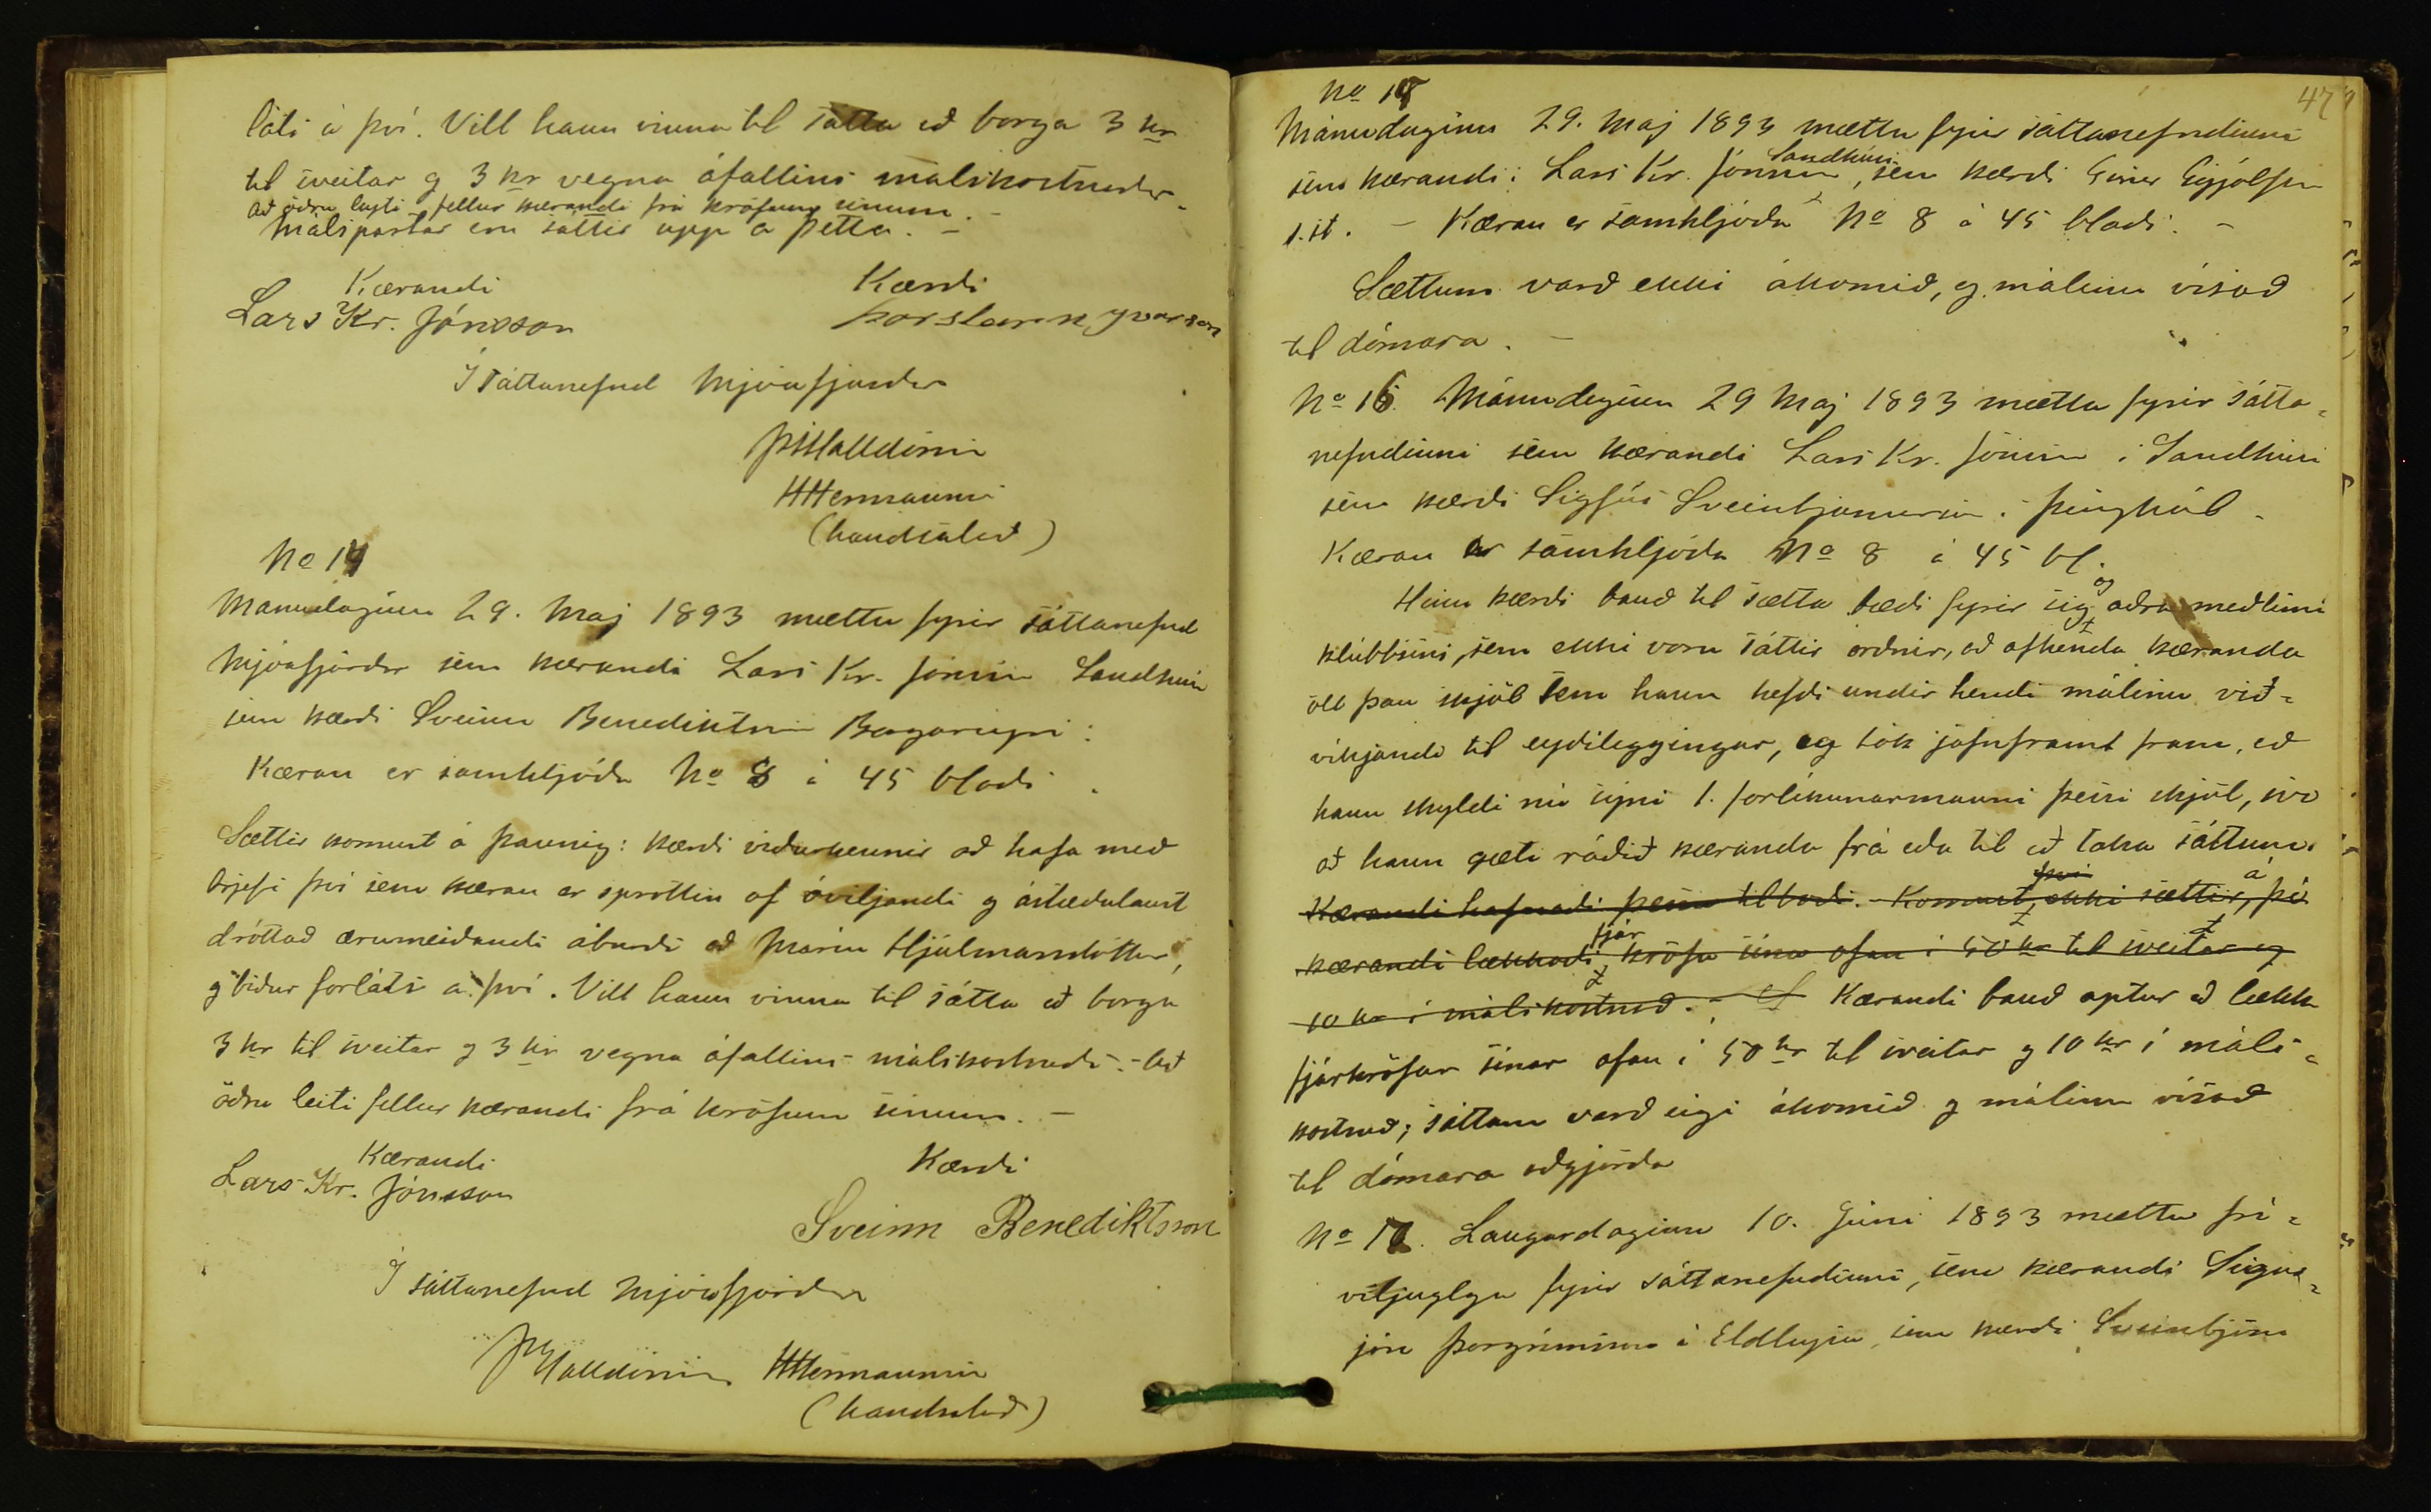 láti á því. Vill hann vinna til sátta að borga 3 kr
til sveitar og 3 kr vegna áfallins málskostnaðar.
Að öðru leyti fellur kærandi frá kröfum sínum. -
Málspartar eru sáttir upp á þetta. -
Kærandi Kærði
Lars Kr. Jónsson Þorsteinn Yvarson
Í sáttanefnd Mjóafjarðar
ÞHalldórss
HHermannss
(handsalað)
No 14
Mánudaginn 29. Maj 1893 mættu fyrir sáttanefnd
Mjóafjarðar sem kærandi Lars Kr. Jónss Sandhúsi
sem kærði Sveinn Benediktss Borgareyri:
Kæran er samhljóða No 8 á 45 blaði.
Sættir komust á þannig: kærði viðurkennir að hafa með
brjefi því sem kæran er sprottin af óviljandi og ástæðulaust
dróttað ærumeiðandi áburði að Maríu Hjálmarsdóttur,
og biður forláts á því. Vill hann vinna til sátta að borga
3 kr til sveitar og 3 kr vegna áfallins málskostnaðs. - Að
öðru leiti fellur kærandi frá kröfum sínum. -
Kærandi Kærði
Lars Kr. Jónsson
Sveinn Benediktsson
Í sáttanefnd Mjóafjarðar
ÞHalldórss HHermannss
(handsalað)
47
No 15
Mánudaginn 29. Maj 1893 mættu fyrir sáttanefndinni
Sandhúsi
sem kærandi: Lars Kr. Jónsson, sem kærði Einar Eyjólfsson
s.st. - Kæran er samhljóða No 8 á 45 blaði. -
Sættum varð ekki ákomið, og málinu vísað
til dómara. -
No 16. Mánudaginn 29 Maj 1893 mættu fyrir sátta-
nefndinni sem kærandi Lars Kr. Jónss í Sandhúsi
sem kærði Sigfús Sveinbjarnarson í Þinghól.
Kæran er samhljóða No 8 á 45 bl.
og
Hinn kærði bauð til sætta bæði fyrir sig aðra meðlimi
klúbbsins, sem ekki voru sáttir orðnir, að afhenda kæranda
öll þau skjöl sem hann hefði undir hendi málinu við-
víkjandi til eyðileggingar, og tók jafnframt fram, að
hann skyldi nú sýni 1. forlíkunarmanni þessi skjöl, svo
að hann gæti ráðið kæranda frá eða til að taka sáttum.
því á
Kærandi hafnaði þessu tilboði. Komust ekki sættir, þó
fjár
kærandi lækkaði kröfu sína ofan í 50 kr til sveitar og
10 kr í málskostnað. - Kærandi bauð aptur að lækk
fjárkröfur sínar ofan í 50 kr til sveitar og 10 kr í máls-
kostnað; sáttum varð eigi ákomið og málinu vísað
til dómara aðgjörða
No 17. Laugardaginn 10. Júni 1893 mættu frí-
viljuglega fyrir sáttanefndinni, sem kærandi Sigur-
jón Þorgrímsson í Eldleysu, sem kærði Sveinbjörn